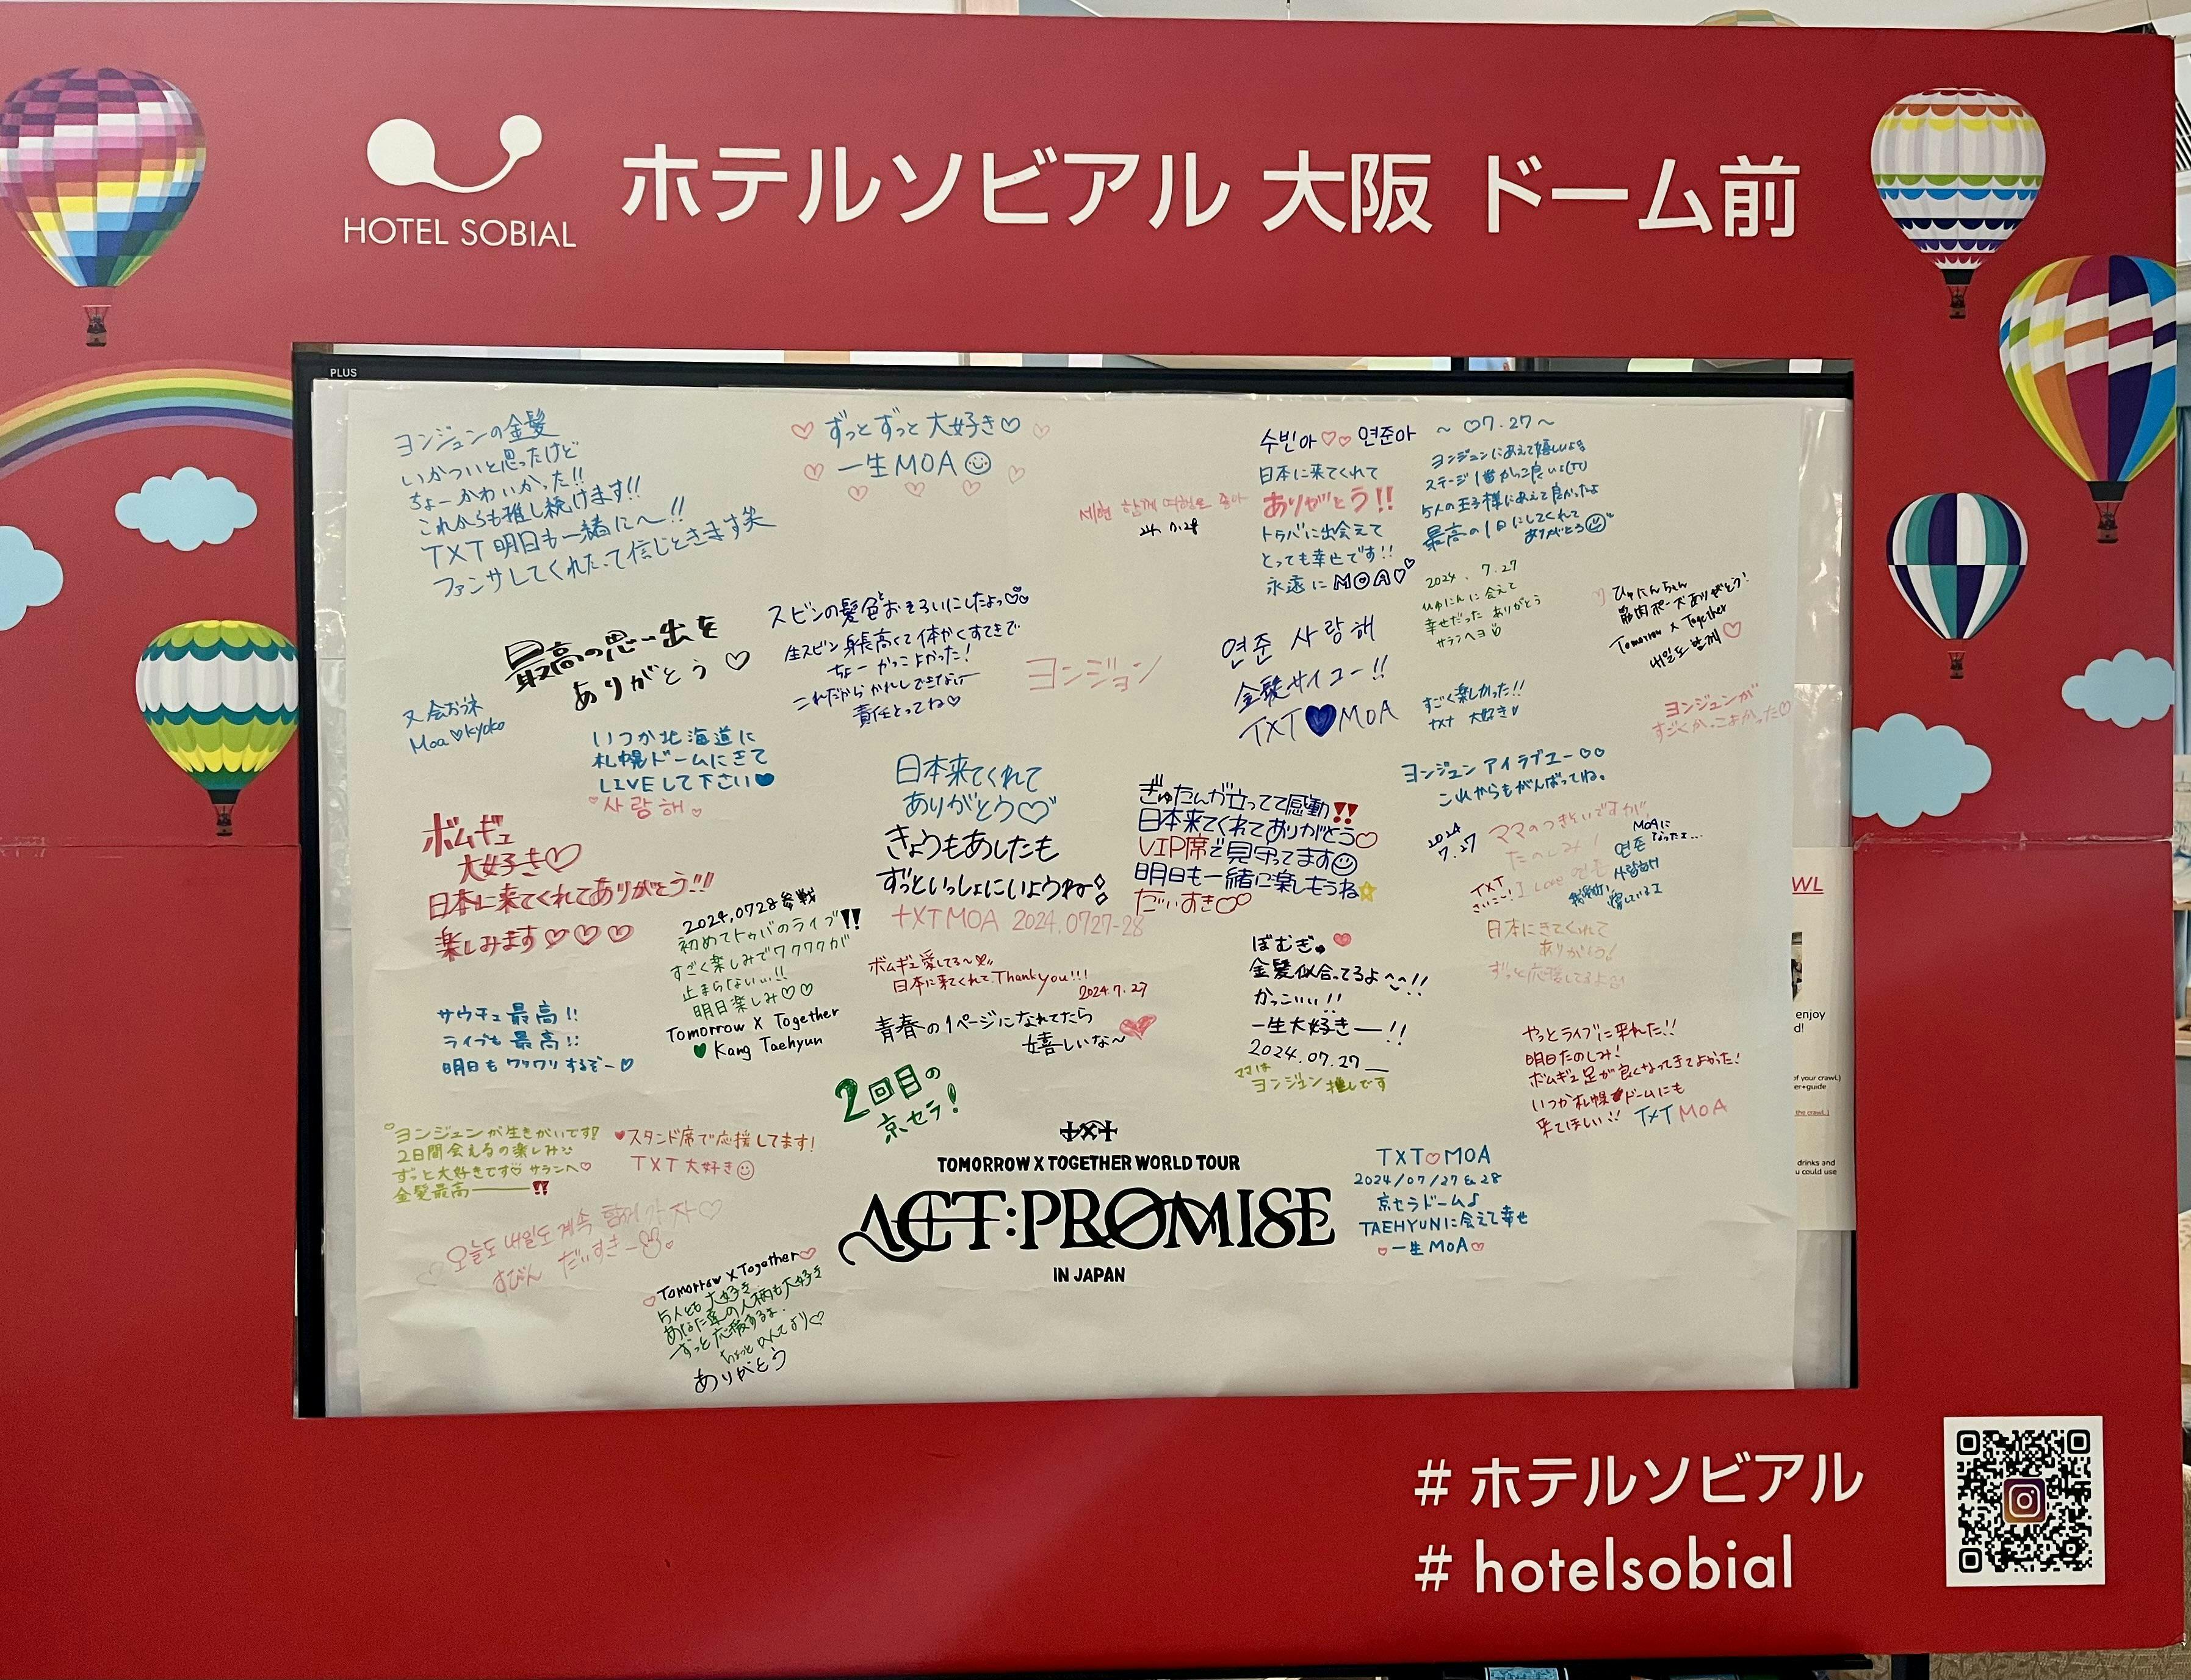 HOTEL SOBIAL
ホテルソビアル 大阪 ドーム前
PLUS
ヨンジュンの金髪
いかついと思ったけど
ちょーかわいかった!!
これからも推し続けます!!
TXT 明日も一緒に〜!!
ファンサしてくれたって信じときます笑
ずっとずっと大好き♡
一生MOA
세현 함께 여행도 좋아
24.7.28
수빈아♡♡ 연준아
日本に来てくれて
ありがとう!!
トゥバに出会えて
とっても幸せです!!
永遠にMOA♡
~ ♡7.27 ~
ヨンジュンにあえて嬉しいよ
ステージ1番かっこ良いよ
5人の王子様にあえて良かったよ
最高の1日にしてくれて
ありがとう
2024. 7.27
ひゅにんに会えて
幸せだった ありがとう
サランヘヨ
ひゅにんちゃん
筋肉ポーズありがとう!
Tomorrow x Together
내일도 함께♡
最高の思い出を
ありがとう ♡
スビンの髪色とおそろいにしたよっ♡
生スビン身長高くて体かくすてきで
ちょーかっこよかった!
これだからかれしできない
責任とってね♡
ヨンジョン
연준 사랑해
金髪サイコー!!
TXT♥MOA
すごく楽しかった!!
txt 大好き
ヨンジュンが
すごくかっこよかった♡
又会おうネ
Moa♡kyoko
いつか北海道に
札幌ドームにきて
LIVEして下さい♥
사랑해
日本来てくれて
ありがとう♡
きょうもあしたも
ずっといっしょにいようね
TXTMOA 2024.0727-28
ぎゅたんが立ってて感動!!
日本来てくれてありがとう♡
VIP席で見守ってます
明日も一緒に楽しもうね
だいすき♡♡
ヨンジュン アイラブユー♡♡
これからもがんばってね。
2024
7.27
ママのつきそいですが、
たのしみ!
I Love 연준
TXT
さいこー!
MOAに
なったよ...
연준
사랑해
ボムギュ
大好き♡
日本に来てくれてありがとう!!!
楽しみます♡♡♡
2024.0728参戦
初めてトゥバのライブ!!
すごく楽しみでワクワクが
止まらない...!!
明日楽しみ♡♡
Tomorrow X Together
♥ Kang Taehyun
ボムギュ愛してる〜
日本に来てくれてThankyou!!!
2024.7.27
青春の1ページになれてたら
嬉しいな〜
ぼむぎゅ
金髪似合ってるよ〜!!
かっこいい!!
一生大好き—!!
2024.07.27
ママは
ヨンジュン推しです
日本にきてくれて
ありがとう!
ずっと応援してるよ
サウチュ最高!!
ライブも最高!!
明日もワクワクするぞー♡
2回目の
京セラ!
やっとライブに来れた!!
明日たのしみ!
ボムギュ足が良くなってきてよかった!
いつか札幌ドームにも
来てほしい!! TXT MOA
ヨンジュンが生きがいです!!
2日間会えるの楽しみ
ずっと大好きです♡ サランヘ♡
金髪最高———!!
♥スタンド席で応援してます!
TXT 大好き
오늘도 내일도 계속 함께 가자♡
すびん だいすきー
TXT
TOMORROW X TOGETHER WORLD TOUR
ACT:PROMISE
IN JAPAN
TXT♡MOA
2024/07/27&28
京セラドーム♪
TAEHYUNに会えて幸せ
♡一生MOA♡
Tomorrow X Together♡
5人とも大好き
あなた達の人柄も大好き
ずっと応援するよ.
ありがとう
WL
enjoy
d!
of your crawl.)
er+guide
the crawl.)
drinks and
u could use
# ホテルソビアル
# hotelsobial